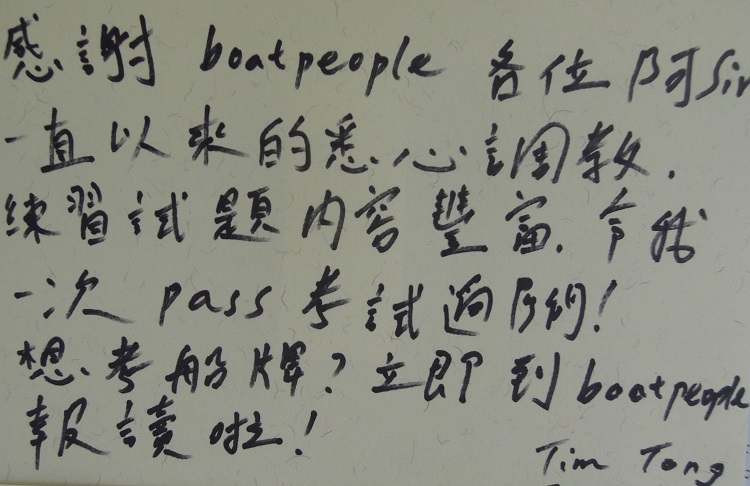 感謝 boatpeople 各位阿Sir
一直以來的悉心調教.
練習試題內容豐富.令我
一次 pass 考試過關!
想考船牌?立即到 boatpeople
報讀啦!
Tim Tong